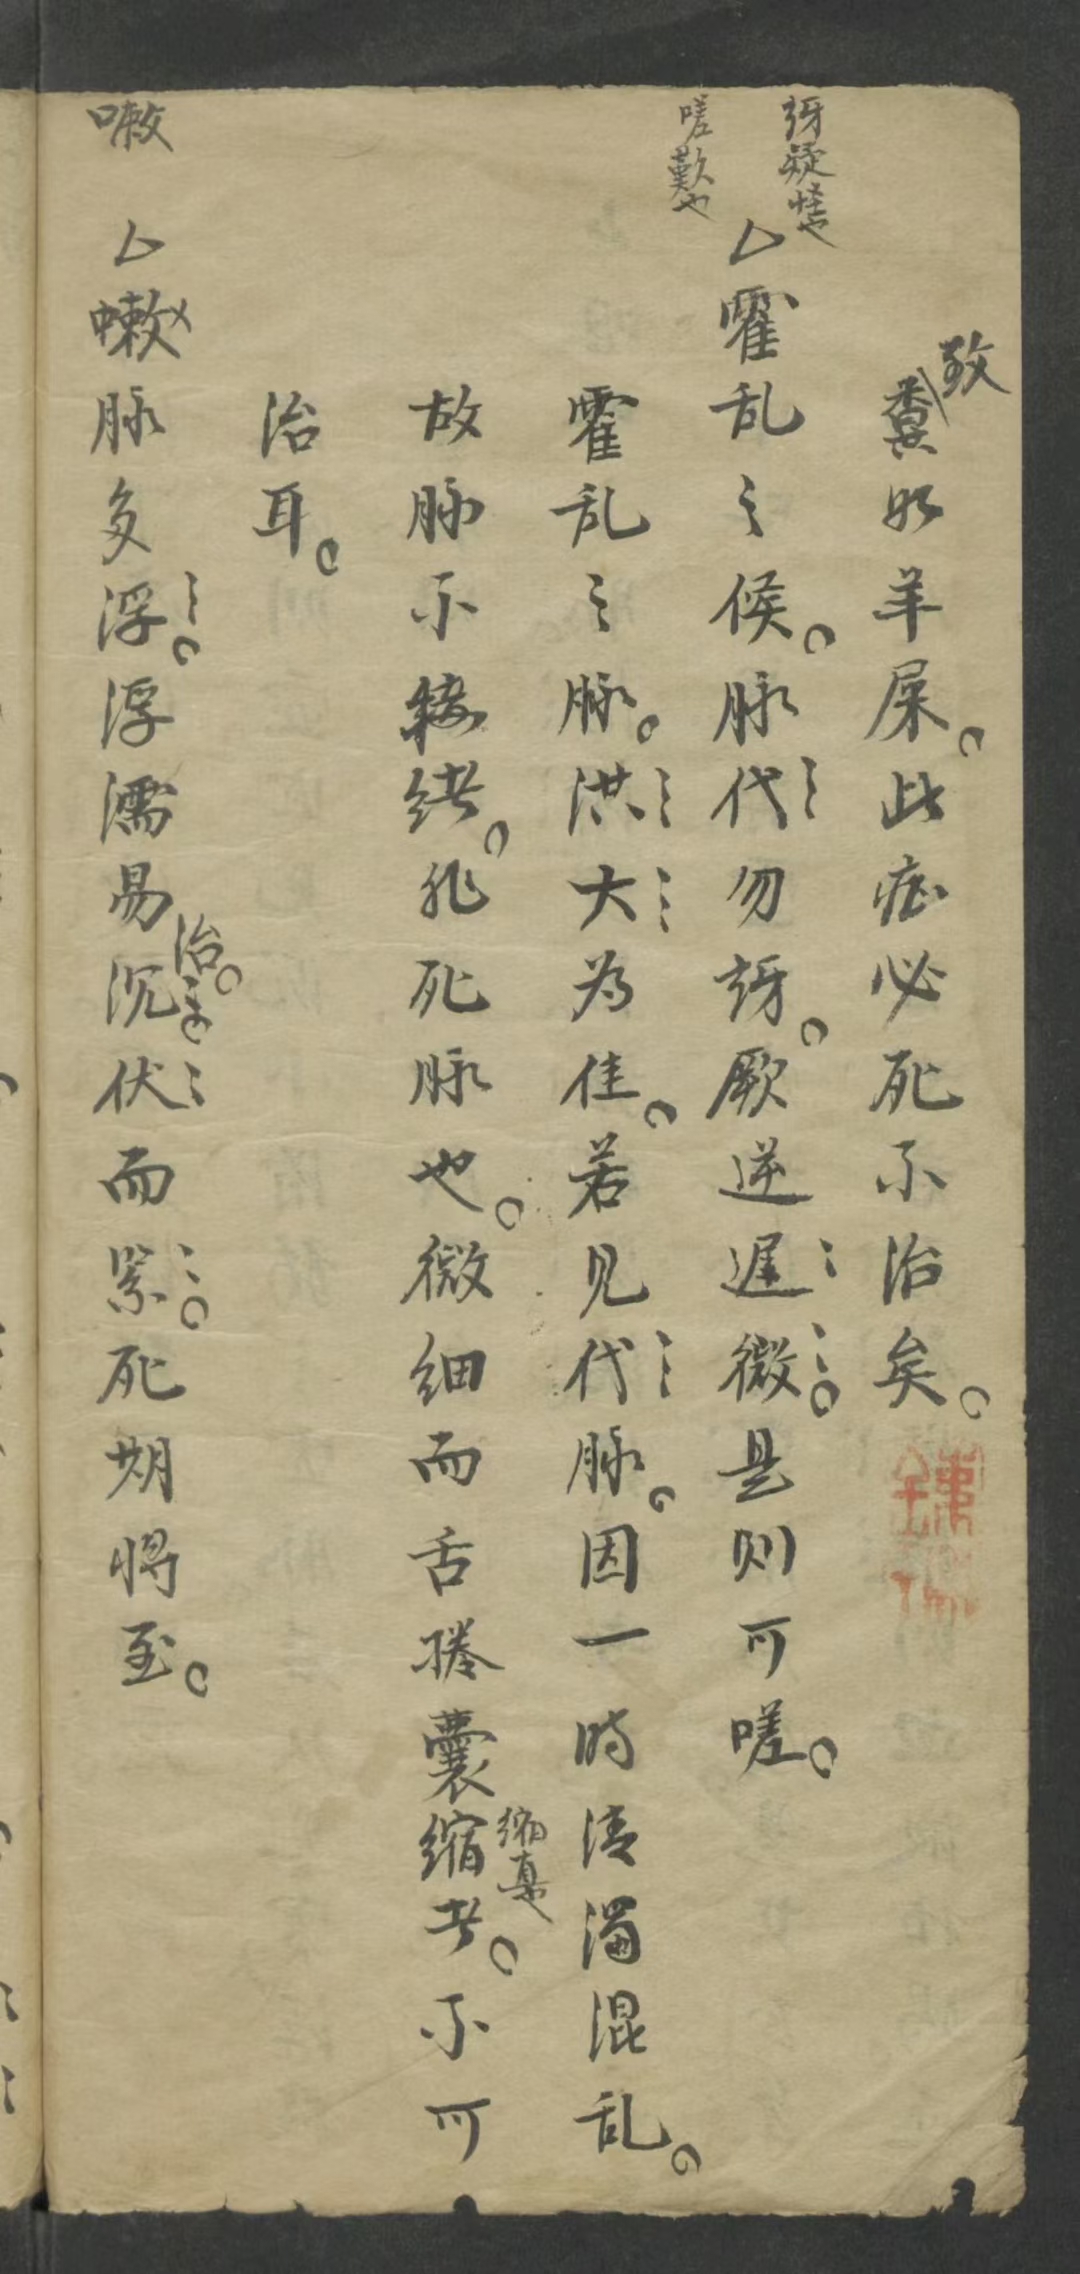 訝疑怪也
嗟歎也
致
糞如羊屎。此症必死不治矣。
霍乱之候。脉代勿訝。厥逆遲微。是则可嗟。
霍乱之脉。洪大为佳。若见代脉。因一時清濁混乱。
故脉不接续。非死脉也。微细而舌捲囊缩者。不可
缩直也
治耳。
嗽
嗽脉多浮。浮濡易沉伏而紧。死期将至。
治。